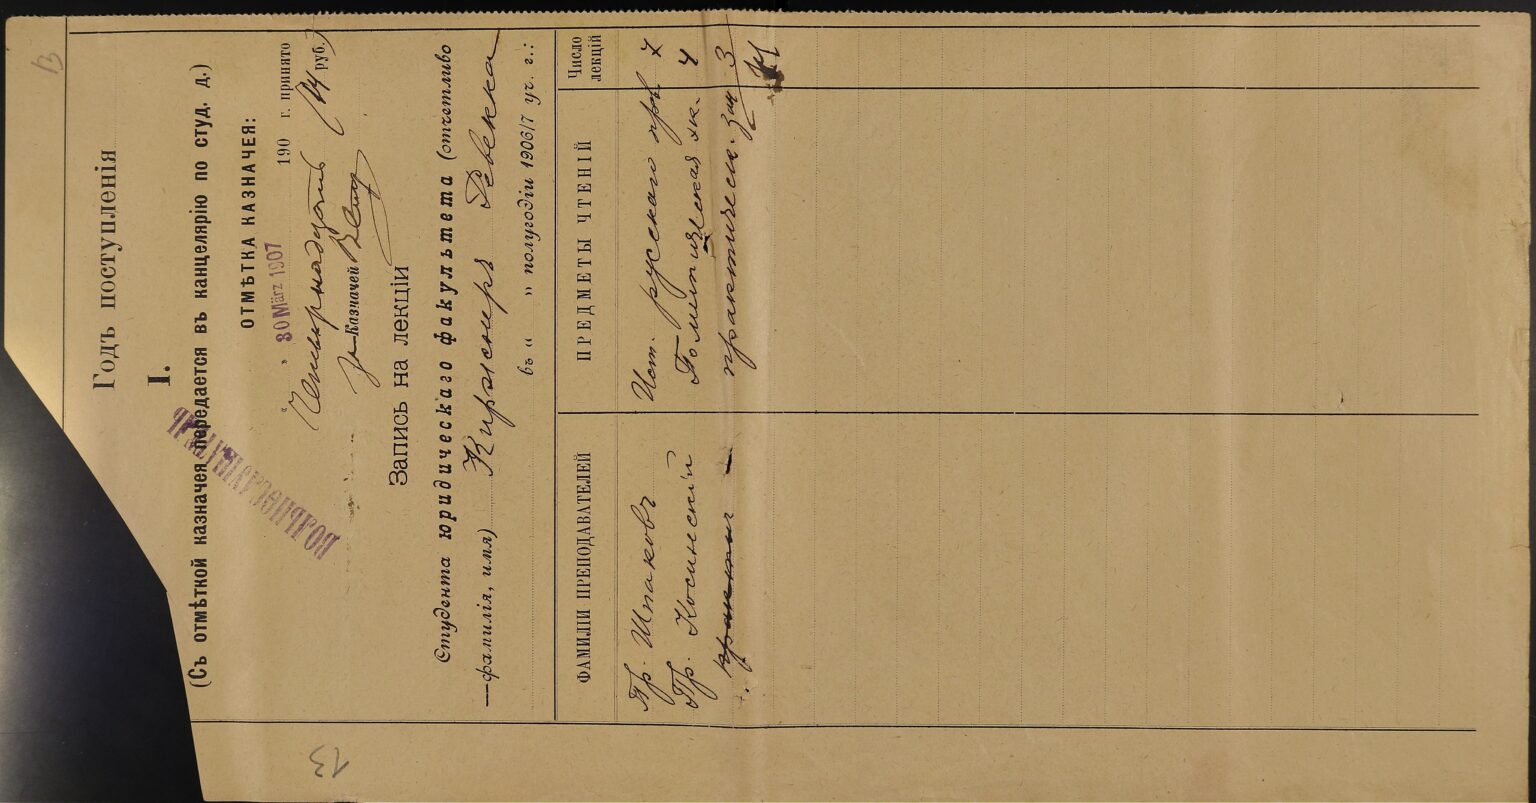 13
Годъ поступленія
I.
(Съ отмѣткой казначея передается въ канцелярію по студ. д.)
ВОЛЬНОСЛУШАТЕЛЬ
ОТМѢТКА КАЗНАЧЕЯ:
„ “ 30 März 1907 190 г. принято
Четырнадцать (14 руб.)
за Казначей
Запись на лекціи
Студента юридическаго факультета (отчетливо
—фамилія, имя) Киржнеръ Ревекка
въ „ “ полугодіи 1906/7 уч. г.:
ФАМИЛІИ ПРЕПОДАВАТЕЛЕЙ ПРЕДМЕТЫ ЧТЕНІЙ Число лекцій
Пр. Шпаковъ Ист. русскаго пр. 7
Пр. Косинскій Политическая эк. 4
практич практическ. зан 3
14
13